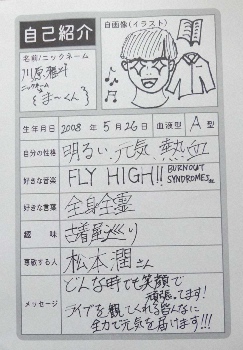 自己紹介
自画像(イラスト)
名前/ニックネーム
川原雅斗
ニックネーム
{まーくん}
生年月日 2008年5月26日 血液型 A型
自分の性格 明るい 元気 熱血
好きな音楽 FLY HIGH!! BURNOUT SYNDROMES
好きな言葉 全身全霊
趣味 古着屋巡り
尊敬する人 松本潤さん
メッセージ どんな時でも笑顔で
頑張ってます!
ライブを観てくれる皆んなに
全力で元気を届けます!!!